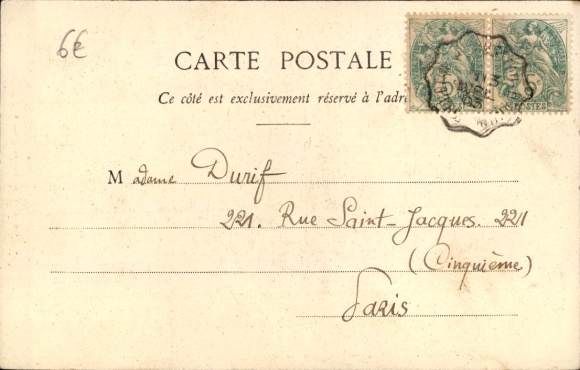 6€
CARTE POSTALE
Ce côté est exclusivement réservé à l'adre
Madame Durif
221. Rue Saint-Jacques. 221
(Cinquième)
Paris
5 5
POSTES